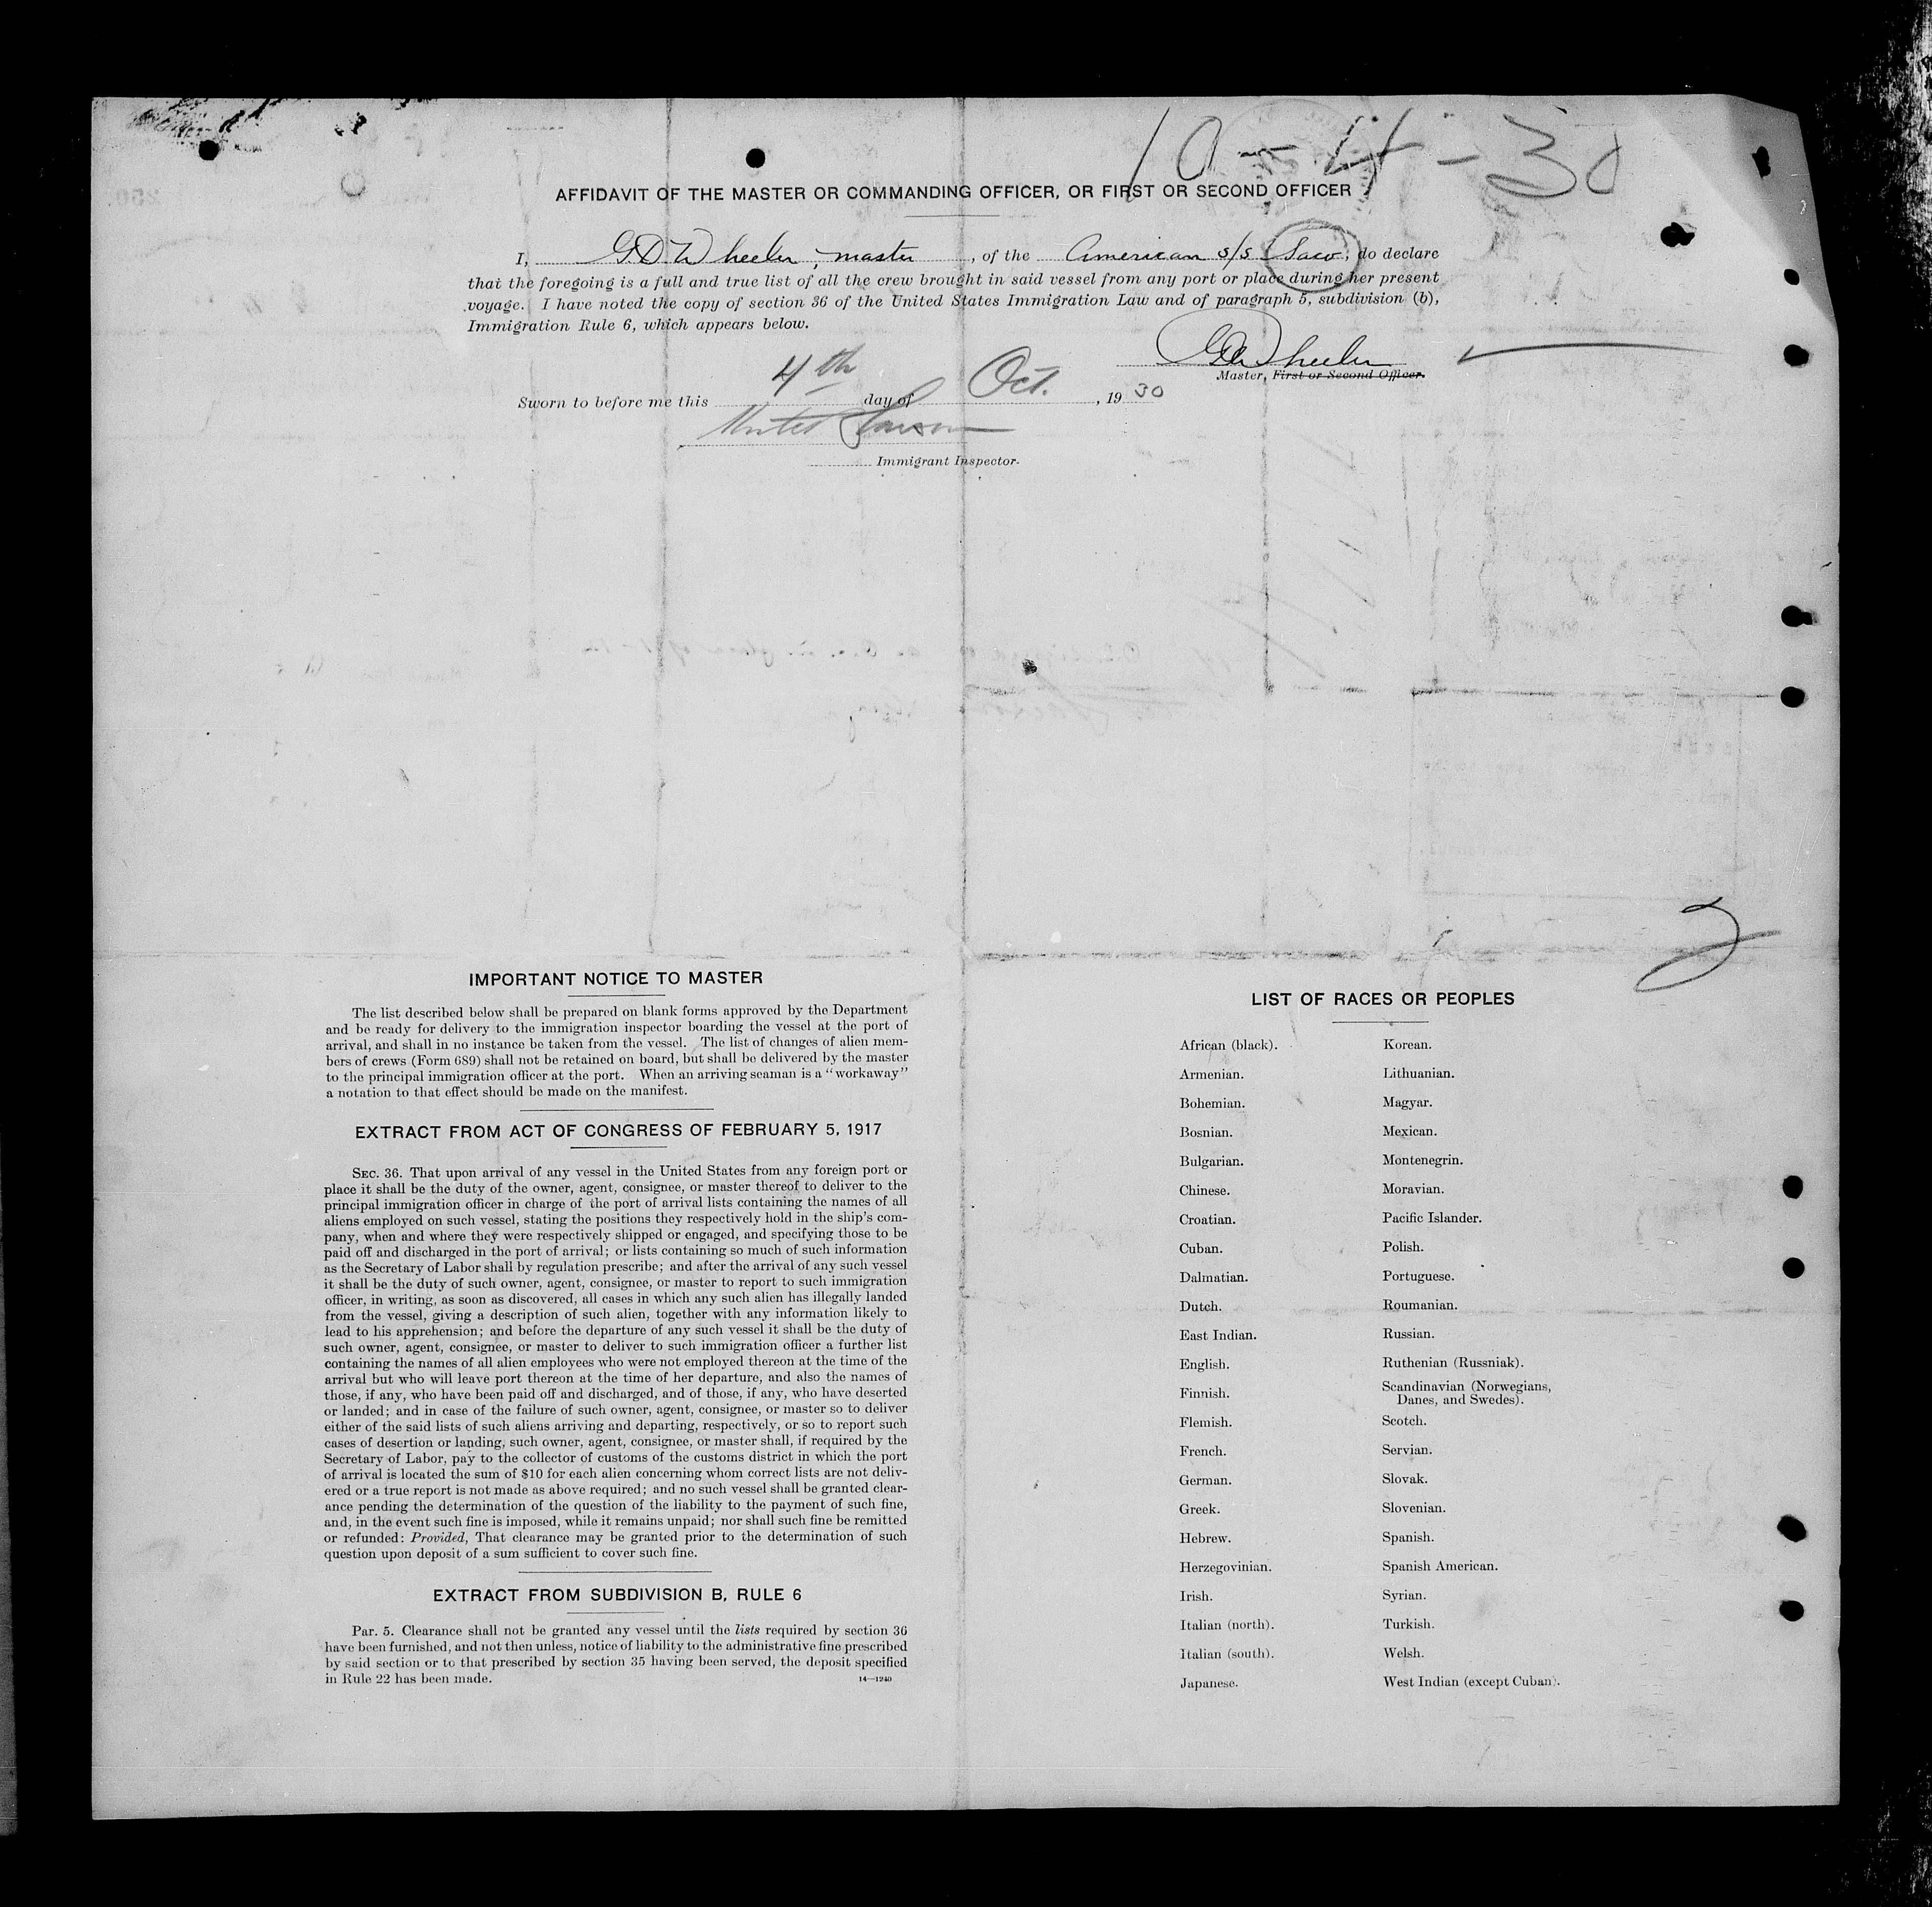 10-4-30
AFFIDAVIT OF THE MASTER OR COMMANDING OFFICER, OR FIRST OR SECOND OFFICER
I, G.D. Wheeler, master, of the American s/s Saco, do declare
that the foregoing is a full and true list of all the crew brought in said vessel from any port or place during her present
voyage. I have noted the copy of section 36 of the United States Immigration Law and of paragraph 5, subdivision (b),
Immigration Rule 6, which appears below.
Wheeler
Master, First or Second Officer.
Sworn to before me this 4th day of Oct., 1930
Immigrant Inspector.
IMPORTANT NOTICE TO MASTER
The list described below shall be prepared on blank forms approved by the Department
and be ready for delivery to the immigration inspector boarding the vessel at the port of
arrival, and shall in no instance be taken from the vessel. The list of changes of alien mem-
bers of crews (Form 689) shall not be retained on board, but shall be delivered by the master
to the principal immigration officer at the port. When an arriving seaman is a "workaway"
a notation to that effect should be made on the manifest.
EXTRACT FROM ACT OF CONGRESS OF FEBRUARY 5, 1917
SEC. 36. That upon arrival of any vessel in the United States from any foreign port or
place it shall be the duty of the owner, agent, consignee, or master thereof to deliver to the
principal immigration officer in charge of the port of arrival lists containing the names of all
aliens employed on such vessel, stating the positions they respectively hold in the ship's com-
pany, when and where they were respectively shipped or engaged, and specifying those to be
paid off and discharged in the port of arrival; or lists containing so much of such information
as the Secretary of Labor shall by regulation prescribe; and after the arrival of any such vessel
it shall be the duty of such owner, agent, consignee, or master to report to such immigration
officer, in writing, as soon as discovered, all cases in which any such alien has illegally landed
from the vessel, giving a description of such alien, together with any information likely to
lead to his apprehension; and before the departure of any such vessel it shall be the duty of
such owner, agent, consignee, or master to deliver to such immigration officer a further list
containing the names of all alien employees who were not employed thereon at the time of the
arrival but who will leave port thereon at the time of her departure, and also the names of
those, if any, who have been paid off and discharged, and of those, if any, who have deserted
or landed; and in case of the failure of such owner, agent, consignee, or master so to deliver
either of the said lists of such aliens arriving and departing, respectively, or so to report such
cases of desertion or landing, such owner, agent, consignee, or master shall, if required by the
Secretary of Labor, pay to the collector of customs of the customs district in which the port
of arrival is located the sum of $10 for each alien concerning whom correct lists are not deliv-
ered or a true report is not made as above required; and no such vessel shall be granted clear-
ance pending the determination of the question of the liability to the payment of such fine,
and, in the event such fine is imposed, while it remains unpaid; nor shall such fine be remitted
or refunded: Provided, That clearance may be granted prior to the determination of such
question upon deposit of a sum sufficient to cover such fine.
EXTRACT FROM SUBDIVISION B, RULE 6
Par. 5. Clearance shall not be granted any vessel until the lists required by section 36
have been furnished, and not then unless, notice of liability to the administrative fine prescribed
by said section or to that prescribed by section 35 having been served, the deposit specified
in Rule 22 has been made.
14—1240
LIST OF RACES OR PEOPLES
African (black).
Armenian.
Bohemian.
Bosnian.
Bulgarian.
Chinese.
Croatian.
Cuban.
Dalmatian.
Dutch.
East Indian.
English.
Finnish.
Flemish.
French.
German.
Greek.
Hebrew.
Herzegovinian.
Irish.
Italian (north).
Italian (south).
Japanese.
Korean.
Lithuanian.
Magyar.
Mexican.
Montenegrin.
Moravian.
Pacific Islander.
Polish.
Portuguese.
Roumanian.
Russian.
Ruthenian (Russniak).
Scandinavian (Norwegians,
Danes, and Swedes).
Scotch.
Servian.
Slovak.
Slovenian.
Spanish.
Spanish American.
Syrian.
Turkish.
Welsh.
West Indian (except Cuban).